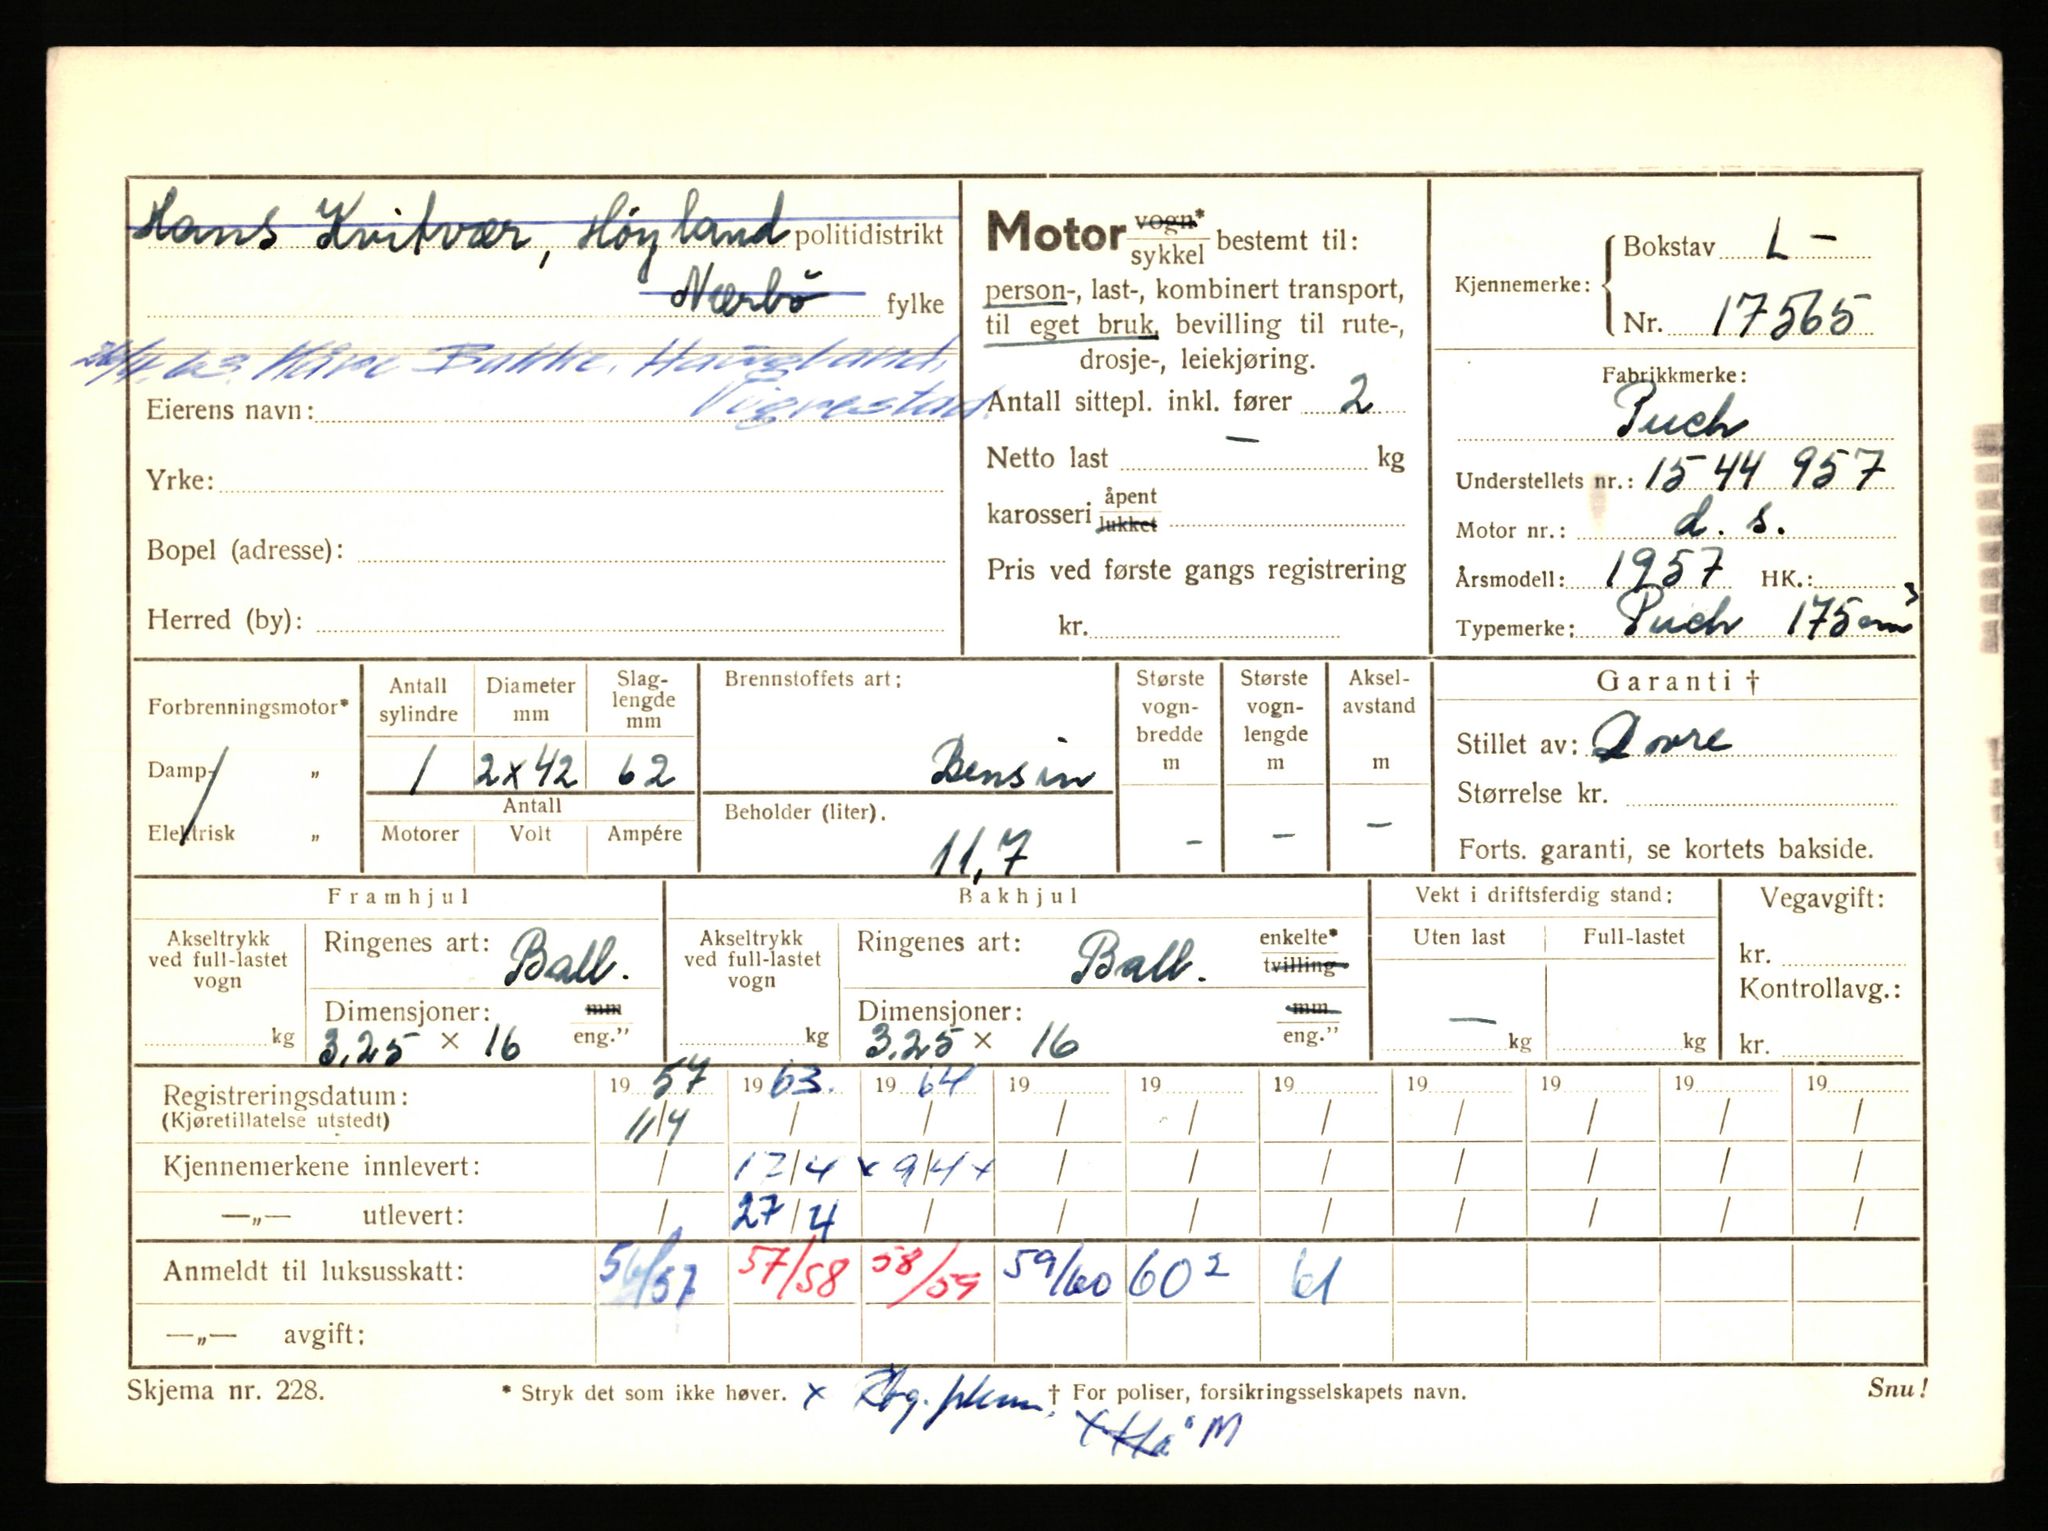 Hans Kvitvær, Høyland politidistrikt
Nærbö fylke
26/4.63. Kåre Bakke, Haugland,
Vigrestad.
Eierens navn:
Yrke:
Bopel (adresse):
Herred (by):
Motor vogn* sykkel bestemt til:
person-, last-, kombinert transport,
til eget bruk, bevilling til rute-,
drosje-, leiekjøring.
Antall sittepl. inkl. fører 2
Netto last — kg
karosseri åpent lukket
Pris ved første gangs registrering
kr.
Kjennemerke: Bokstav L -
Nr. 17565
Fabrikkmerke:
Puch
Understellets nr.: 1544 957
Motor nr.: d. s.
Årsmodell: 1957 HK.:
Typemerke: Puch 175cm³
Forbrenningsmotor*
Damp- „
Elektrisk „
Antall sylindre
Diameter mm
Slag-lengde mm
1 2x42 62
Antall
Motorer Volt Ampére
Brennstoffets art:
Bensin
Beholder (liter).
11,7
Største vogn-bredde m
–
Største vogn-lengde m
–
Aksel-avstand m
–
Garanti †
Stillet av: Dovre
Størrelse kr.
Forts. garanti, se kortets bakside.
Framhjul
Akseltrykk ved full-lastet vogn
kg
Ringenes art: Ball.
Dimensjoner: mm
3,25 x 16 eng.”
Bakhjul
Akseltrykk ved full-lastet vogn
kg
Ringenes art: Ball. enkelte* tvilling
Dimensjoner: mm
3.25 x 16 eng.”
Vekt i driftsferdig stand:
Uten last Full-lastet
— kg kg
Vegavgift:
kr.
Kontrollavg.:
kr.
Registreringsdatum: 19 57 19 63. 19 64 19 19 19 19 19 19 19
(Kjøretillatelse utstedt) 11/4 / / / / / / / / /
Kjennemerkene innlevert: / 17/4 x 9/4 x / / / / / / /
—„— utlevert: / 27/4 / / / / / / / /
Anmeldt til luksusskatt: 56/57 57/58 58/59 59/60 60² 61
—„— avgift:
Skjema nr. 228. * Stryk det som ikke høver. x † For poliser, forsikringsselskapets navn. Snu!
M